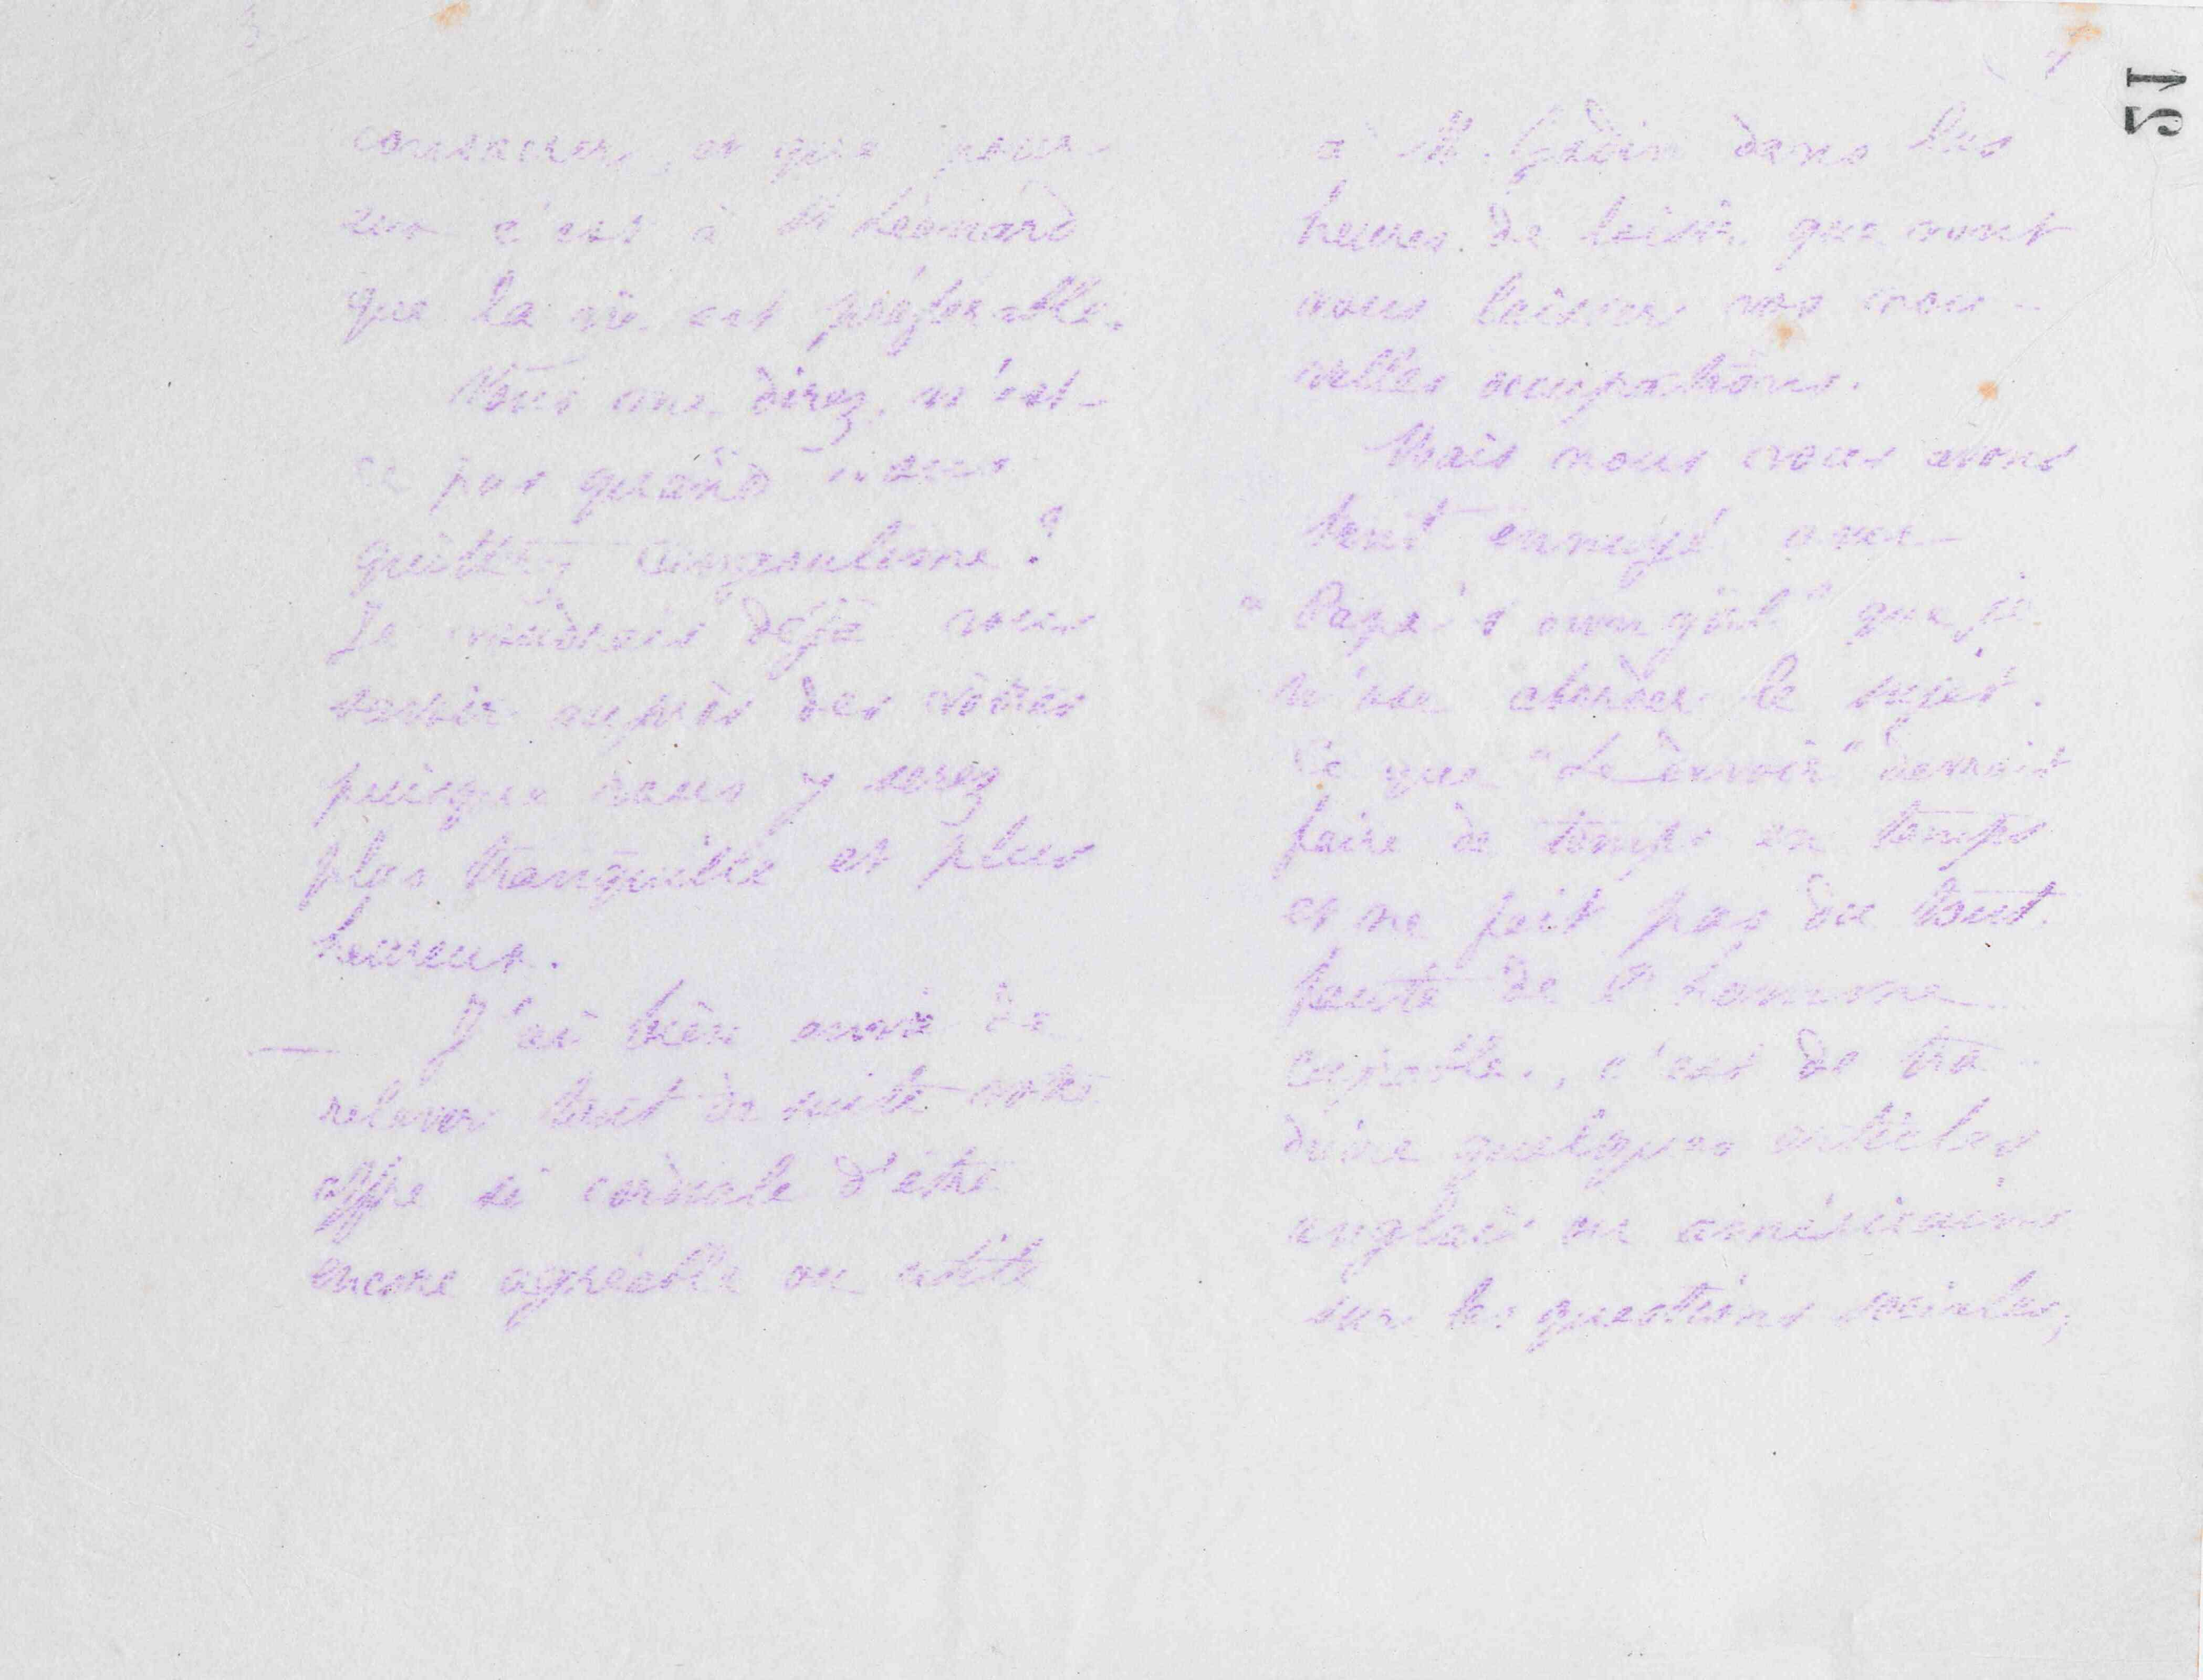 consacrer, et que pour
eux c'est à St Léonard
que la vie est préférable.
Vous me direz, n'est-
ce pas quand vous
quitterez Angoulême?
Je voudrais déjà vous
savoir auprès des vôtres
puisque vous y serez
plus tranquille et plus
heureux.
J'ai bien envie de
relever tout de suite votre
offre si cordiale d'être
encore agréable ou utile
51
à M. Godin dans les
heures de loisir que vont
vous laisser vos nou-
velles occupations.
Mais nous vous avons
tant ennuyé avec
"Papa's own girl" que je
n'ose aborder le sujet.
Ce que "Le Devoir" devrait
faire de temps en temps
et ne fait pas du tout
faute de l'homme
capable, c'est de tra-
duire quelques articles
anglais ou américains
sur les questions sociales,